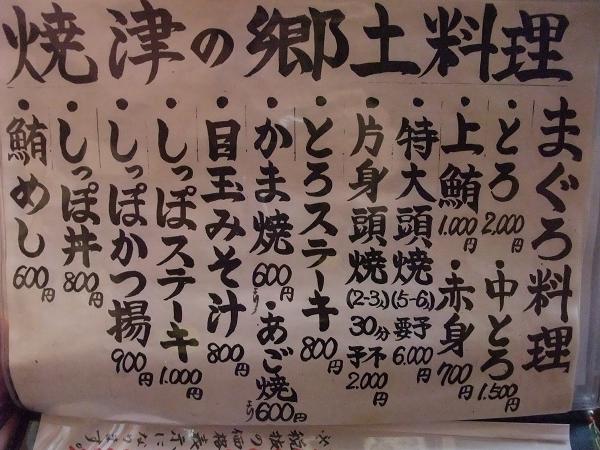 焼津の郷土料理
まぐろ料理
・とろ 2.000円
・中とろ 1.500円
・上鮪 1.000円
・赤身 700円
・特大頭焼 (5-6人) 要予 6.000円
・片身頭焼 (2-3人) 30分 予不 2.000円
・とろステーキ 800円
・かま焼 600円より
・あご焼 600円より
・目玉みそ汁 800円
・しっぽステーキ 1.000円
・しっぽかつ揚 900円
・しっぽ丼 800円
・鮪めし 600円
税抜の価格表示になります。